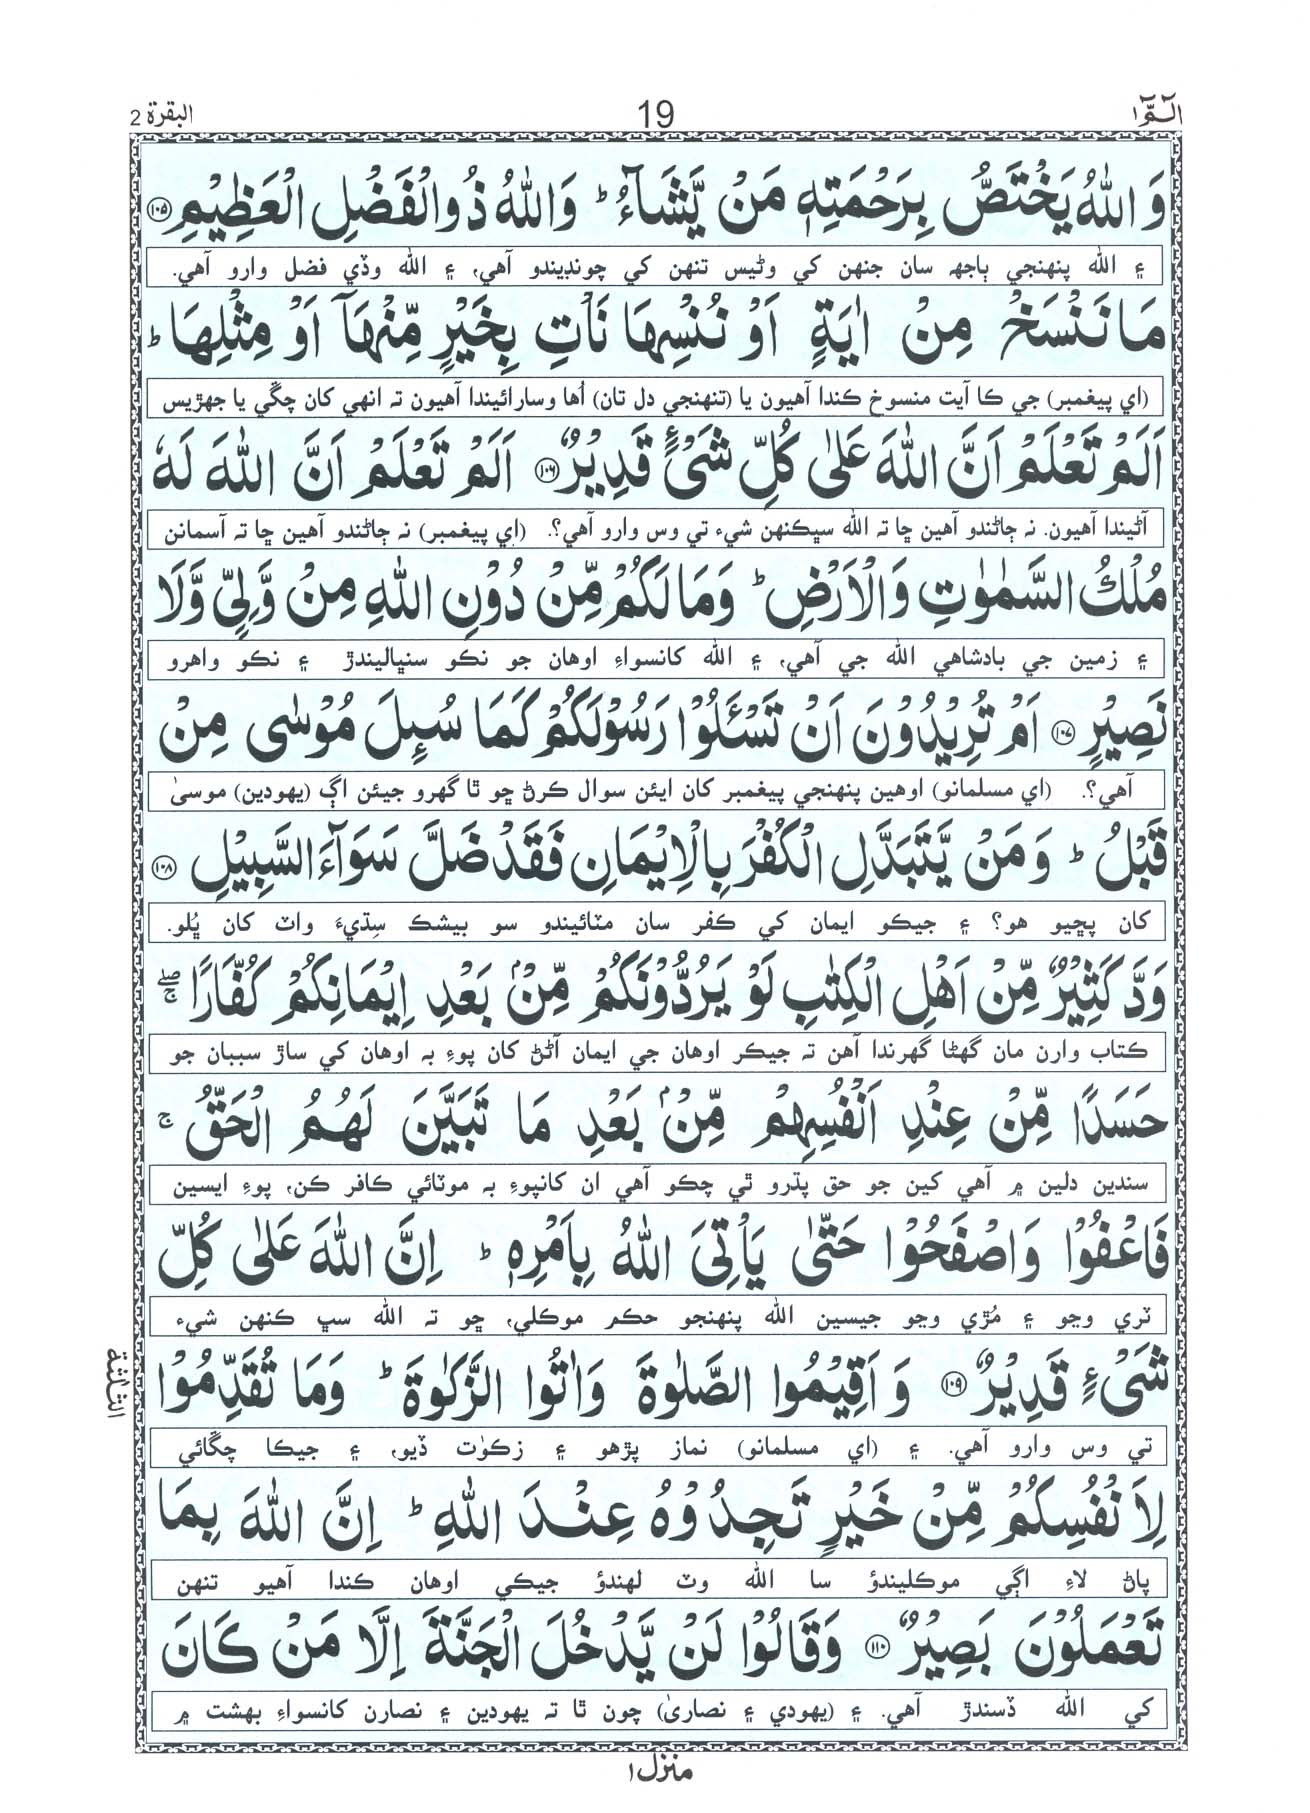 الٓمّٓ ١
19
البقرة 2
وَاللّٰهُ يَخْتَصُّ بِرَحْمَتِهٖ مَنْ يَّشَآءُ ؕ وَاللّٰهُ ذُوالْفَضْلِ الْعَظِيْمِ ١٠٥
۽ الله پنهنجي ٻاجھہ سان جنهن کي وڻيس تنهن کي چونڊيندو آهي، ۽ الله وڏي فضل وارو آهي.
مَا نَنْسَخْ مِنْ اٰيَةٍ اَوْ نُنْسِهَا نَاْتِ بِخَيْرٍ مِّنْهَآ اَوْ مِثْلِهَا ؕ
(اي پيغمبر) جي ڪا آيت منسوخ ڪندا آهيون يا (تنهنجي دل تان) اُها وسارائيندا آهيون تہ انهي کان چڱي يا جهڙيس
اَلَمْ تَعْلَمْ اَنَّ اللّٰهَ عَلٰى كُلِّ شَىْءٍ قَدِيْرٌ ١٠٦ اَلَمْ تَعْلَمْ اَنَّ اللّٰهَ لَهٗ
آڻيندا آهيون. نہ ڄاڻندو آهين ڇا تہ الله سڀڪنهن شيء تي وس وارو آهي؟. (اي پيغمبر) نہ ڄاڻندو آهين ڇا تہ آسمانن
مُلْكُ السَّمٰوٰتِ وَالْاَرْضِ ؕ وَمَا لَكُمْ مِّنْ دُوْنِ اللّٰهِ مِنْ وَّلِىٍّ وَّلَا
۽ زمين جي بادشاهي الله جي آهي، ۽ الله کانسواءِ اوهان جو نڪو سنڀاليندڙ ۽ نڪو واهرو
نَصِيْرٍ ١٠٧ اَمْ تُرِيْدُوْنَ اَنْ تَسْـَٔلُوْا رَسُوْلَكُمْ كَمَا سُىِٕلَ مُوْسٰى مِنْ
آهي؟. (اي مسلمانو) اوهين پنهنجي پيغمبر کان ايئن سوال ڪرڻ ڇو ٿا گهرو جيئن اڳ (يهودين) موسىٰ
قَبْلُ ؕ وَمَنْ يَّتَبَدَّلِ الْكُفْرَ بِالْاِيْمَانِ فَقَدْ ضَلَّ سَوَآءَ السَّبِيْلِ ١٠٨
کان پڇيو هو؟ ۽ جيڪو ايمان کي ڪفر سان مٽائيندو سو بيشڪ سِڌيءَ واٽ کان ڀُلو.
وَدَّ كَثِيْرٌ مِّنْ اَهْلِ الْكِتٰبِ لَوْ يَرُدُّوْنَكُمْ مِّنْۢ بَعْدِ اِيْمَانِكُمْ كُفَّارًا ۖۚ
ڪتاب وارن مان گهڻا گهرندا آهن تہ جيڪر اوهان جي ايمان آڻڻ کان پوءِ بہ اوهان کي ساڙ سببان جو
حَسَدًا مِّنْ عِنْدِ اَنْفُسِهِمْ مِّنْۢ بَعْدِ مَا تَبَيَّنَ لَهُمُ الْحَقُّ ۚ
سندين دلين ۾ آهي کين جو حق پڌرو ٿي چڪو آهي ان کانپوءِ بہ موٽائي ڪافر ڪن، پوءِ ايسين
فَاعْفُوْا وَاصْفَحُوْا حَتّٰى يَاْتِىَ اللّٰهُ بِاَمْرِهٖ ؕ اِنَّ اللّٰهَ عَلٰى كُلِّ
ٽري وڃو ۽ مُڙي وڃو جيسين الله پنهنجو حڪم موڪلي، ڇو تہ الله سڀ ڪنهن شيء
شَىْءٍ قَدِيْرٌ ١٠٩ وَاَقِيْمُوا الصَّلٰوةَ وَاٰتُوا الزَّكٰوةَ ؕ وَمَا تُقَدِّمُوْا
تي وس وارو آهي. ۽ (اي مسلمانو) نماز پڙهو ۽ زڪوٰت ڏيو، ۽ جيڪا چڱائي
لِاَنْفُسِكُمْ مِّنْ خَيْرٍ تَجِدُوْهُ عِنْدَ اللّٰهِ ؕ اِنَّ اللّٰهَ بِمَا
پاڻ لاءِ اڳي موڪليندؤ سا الله وٽ لهندؤ جيڪي اوهان ڪندا آهيو تنهن
تَعْمَلُوْنَ بَصِيْرٌ ١١٠ وَقَالُوْا لَنْ يَّدْخُلَ الْجَنَّةَ اِلَّا مَنْ كَانَ
کي الله ڏسندڙ آهي. ۽ (يهودي ۽ نصارىٰ) چون ٿا تہ يهودين ۽ نصارن کانسواءِ بهشت ۾
الثلثة
منزل ١